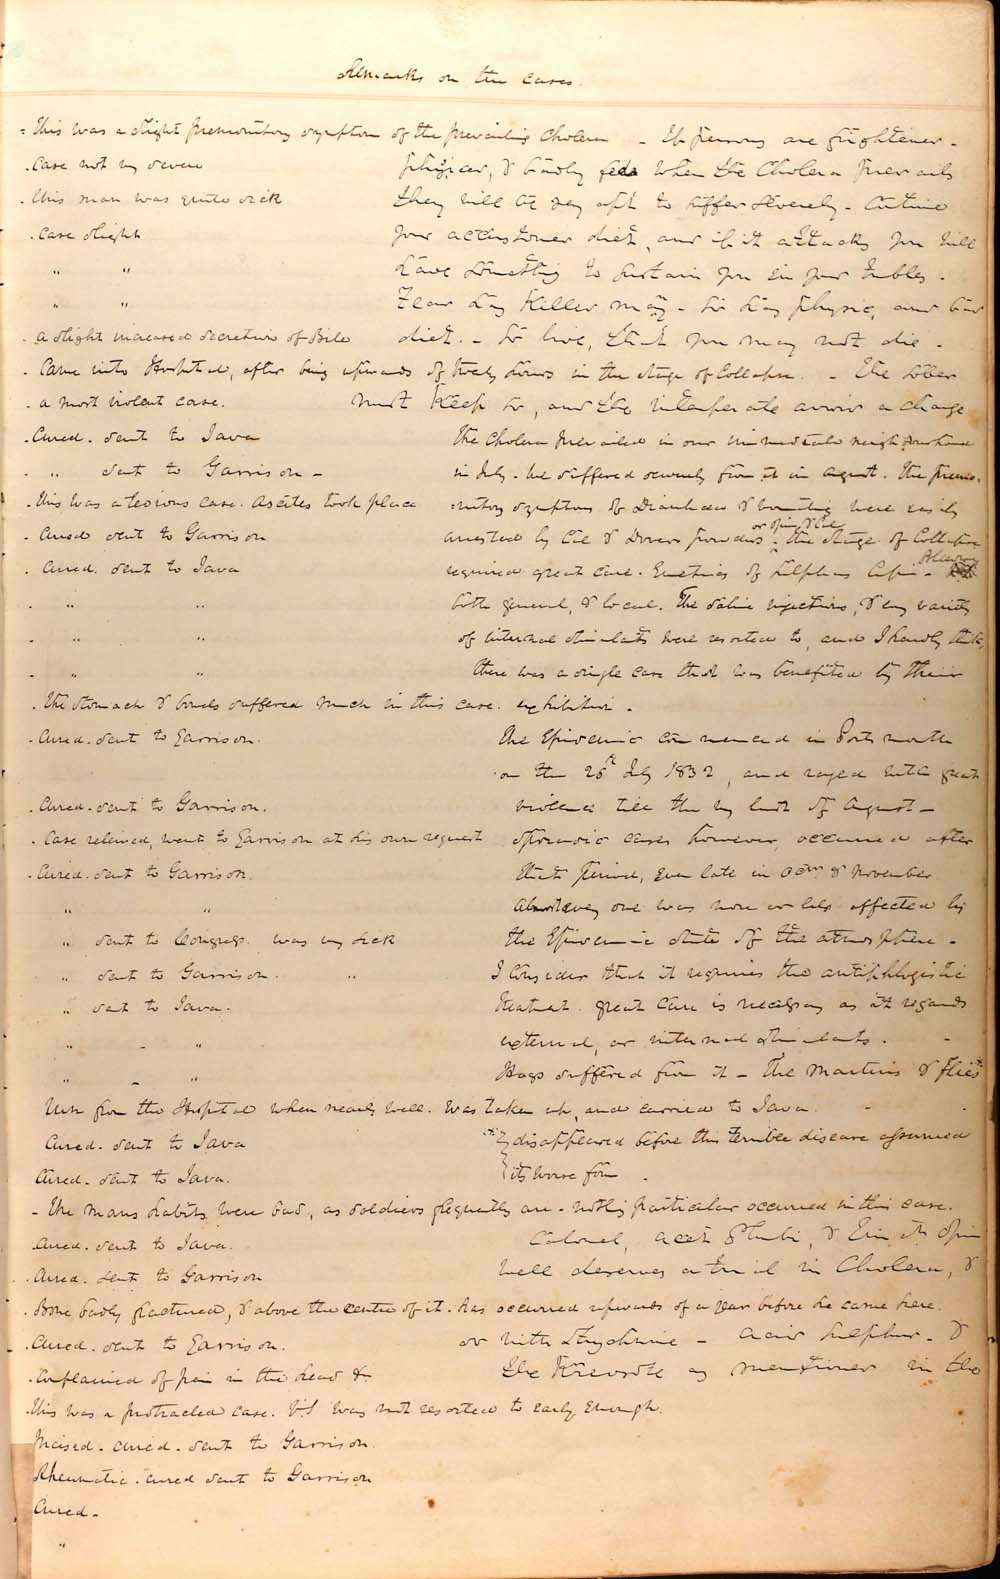 Remarks on the Cases.
This was a slight premonitory symptom of the prevailing Cholera - If persons are frightened -
Case not very severe
physiced, & badly fed when the Cholera prevails
This man was quite sick
they will be very apt to suffer severely -
Case slight
your accustomed diet, and if it attacks you will
" "
have something to sustain you in your
" "
Fear may Killed many - So has physic, and bad
a slight increased secretion of Bile
diet. - So live, that you may not die -
Came into Hospital, after being upwards of twenty hours in the stage of Collapse. - The sober
a most violent case.
must Keep so, and the intemperate a change
Cured. sent to Java
The Cholera prevailed in our immediate neighbourhood
" sent to Garrison -
in July. We suffered severely from it in August. The premo-
This was a tedious case. Ascites took place
-nitory symptoms of Diarrhoea & vomiting were easily
Cured sent to Garrison
arrested by Cal & Dovers powders or opium & Cal - the stage of Collapse
Cured. sent to Java
required great care. Emetics of Sulphas Cupri -
" "
both general, & local. The saline injections, & every variety
" "
of internal stimulants were resorted to, and I hardly think,
" "
there was a single case that was benefited by their
The stomach & bowels suffered much in this case. exhibition -
Cured. sent to Garrison.
The Epidemic commenced in Portsmouth
on the 26th July 1832, and raged with great
Cured. sent to Garrison.
violence till the very last of August -
Case relieved, went to Garrison at his own request
sporadic cases however, occurred after
Cured. sent to Garrison.
that period, even late in & November
" "
Almost every one was more or less affected by
" sent to Congress. was very sick
the Epidemic state of the atmosphere -
" sent to Garrison. "
I consider that it requires the antiphlogistic
" sent to Java.
treatment. great care is necessary as it regards
" - "
external, or internal stimulants. -
" - "
Hogs suffered from it - The martins & flies
Run from the Hospital when nearly well. Was taken up, and carried to Java -
Cured. sent to Java
disappeared before this terrible disease assumed
Cured. sent to Java.
its worse form -
- The mans habits were bad, as soldiers frequently are - nothing particular occurred in this case.
Cured. sent to Java.
Calomel, acet Plumbi, & opii
Cured. sent to Garrison
well deserves a trial in Cholera, &
Bone badly fractured, & above the centre of it. has occurred upwards of a year before he came here.
Cured. sent to Garrison.
or with Strychnine - acid sulphur - &
Complained of pain in the head &
the Kreosote as mentioned in the
This was a protracted case. VS was not resorted to early enough.
Incised - cured - sent to Garrison.
Rheumatic. cured sent to Garrison
Cured -
"